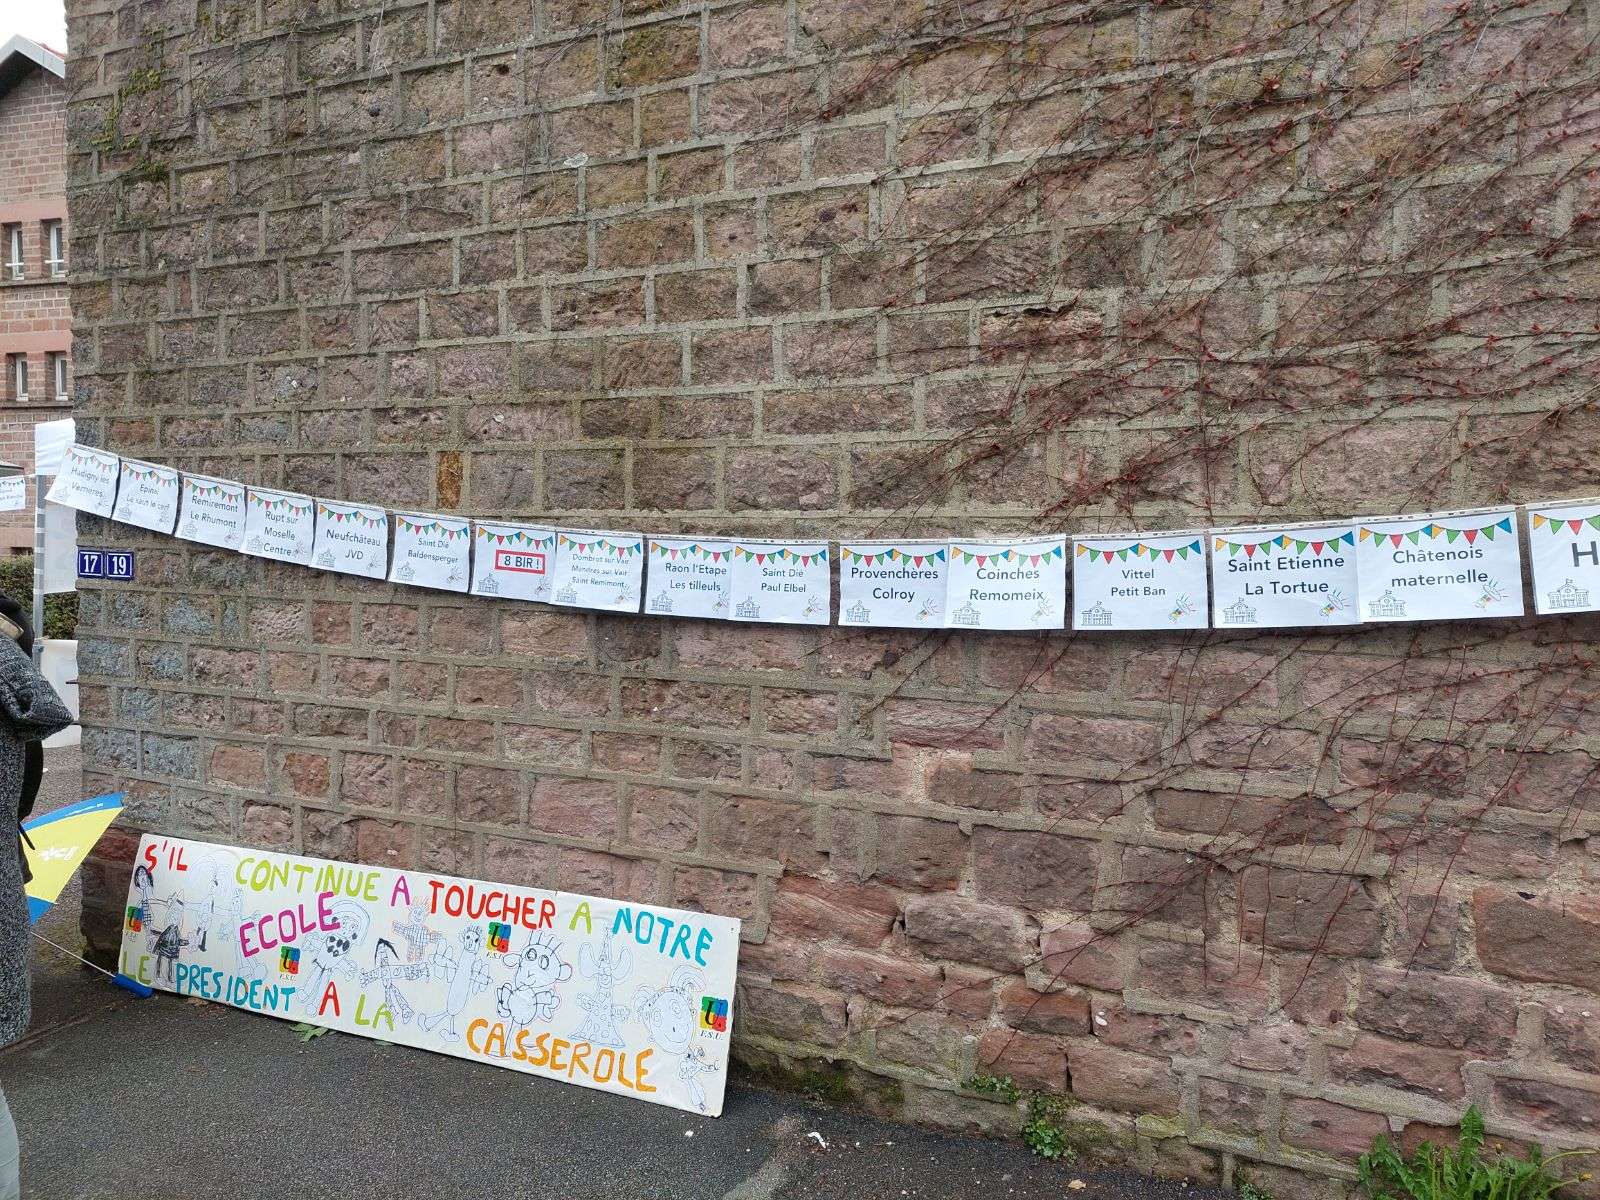 Hadigny les
Verrières
Epinal
Le saut le cerf
Remiremont
Le Rhumont
Rupt sur
Moselle
Centre
Neufchâteau
JVD
Saint Dié
Baldensperger
8 BIR !
Dombrot sur Vair
Mandres sur Vair
Saint Remimont
Raon l'Etape
Les tilleuls
Saint Dié
Paul Elbel
Provenchères
Colroy
Coinches
Remomeix
Vittel
Petit Ban
Saint Etienne
La Tortue
Châtenois
maternelle
H
17 19
S'IL CONTINUE A TOUCHER A NOTRE
ECOLE
LE PRESIDENT A LA CASSEROLE
F.S.U.
F.S.U.
F.S.U.